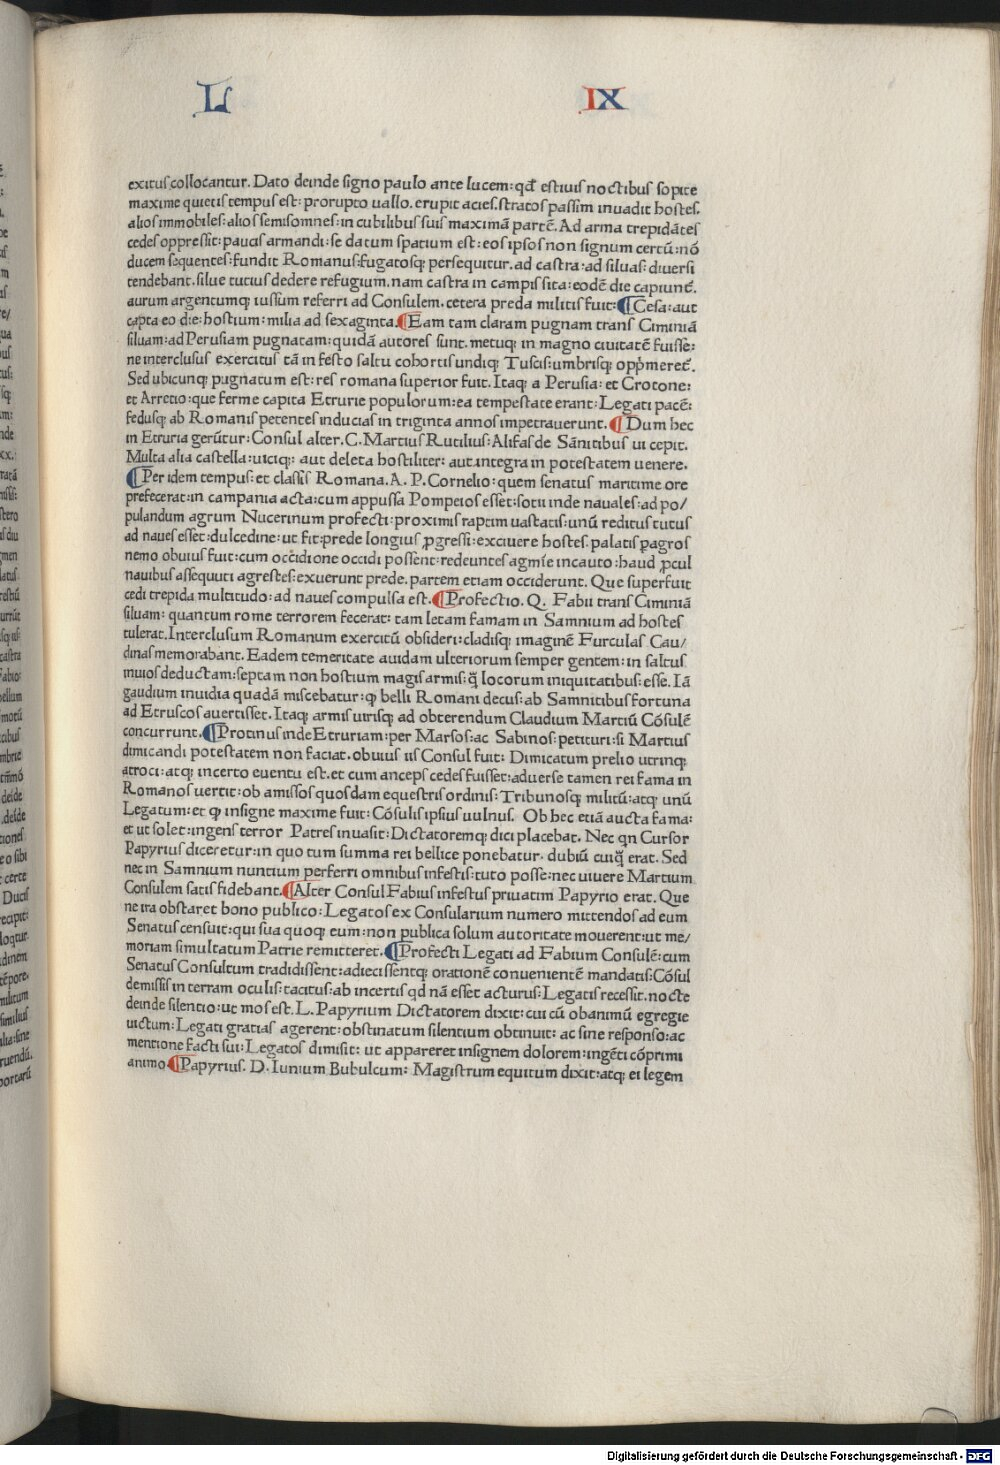 L IX
exitus collocantur. Dato deinde signo paulo ante lucem: qđ estiuis noctibus sopite
maxime quietis tempus est: prorupto uallo. erupit acies. stratos passim inuadit hostes.
alios immobiles: alios semisomnes: in cubilibus suis maximā partē. Ad arma trepidātes
cedes oppressit: paucis armandi: se datum spatium est: eos ipsos non signum certū: nō
ducem sequentes: fundit Romanus: fugatosq; persequitur. ad castra: ad siluas: diuersi
tendebant. silue tutius dedere refugium. nam castra in campis sita: eodē die capiunt̄.
aurum argentumq; iussum referri ad Consulem. cetera preda militis fuit: ¶Cesa: aut
capta eo die: hostium: milia ad sexaginta. ¶Eam tam claram pugnam trans Ciminiā
siluam: ad Perusiam pugnatam: quidā autores sunt. metuq; in magno ciuitatē fuisse:
ne interclusus exercitus tā infesto saltu cohortis undiq; Tuscis: umbrisq; opp̄meret̄.
Sed ubicunq; pugnatum est: res romana superior fuit. Itaq; a Perusia: et Crotone:
et Arretio: que ferme capita Etrurie populorum: ea tempestate erant: Legati pacē:
fedusq; ab Romanis petentes inducias in triginta annos impetrauerunt. ¶Dum hec
in Etruria gerūtur: Consul alter. C. Martius Rutilius: Alifas de Sānitibus ui cepit.
Multa alia castella: uiciq;: aut deleta hostiliter: aut integra in potestatem uenere.
¶Per idem tempus: et classis Romana. A. P. Cornelio: quem senatus maritime ore
prefecerat: in campania acta: cum appussa Pompeios esset: sotii inde nauales: ad po/
pulandum agrum Nucerinum profecti: proximis raptim uastatis: unū reditus tutus
ad naues esset: dulcedine: ut fit: prede longius ꝓgressi: exciuere hostes. palatis ꝑ agros
nemo obuius fuit: cum occidione occidi possent: redeuntes agmīe incauto: haud ꝓcul
nauibus assequuti agrestes: exuerunt prede. partem etiam occiderunt. Que superfuit
cedi trepida multitudo: ad naues compulsa est. ¶Profectio. Q. Fabii trans Ciminiā
siluam: quantum rome terrorem fecerat: tam letam famam in Samnium ad hostes
tulerat. Interclusum Romanum exercitū obsideri: cladisq; imaginē Furculas Cau/
dinas memorabant. Eadem temeritate auidam ulteriorum semper gentem: in saltus
inuios deductam: septam non hostium magis armis: q̄ locorum iniquitatibus: esse. Iā
gaudium inuidia quadā miscebatur: ꝙ belli Romani decus: ab Samnitibus fortuna
ad Etruscos auertisset. Itaq; armis uirisq; ad obterendum Claudium Martiū Cōsulē
concurrunt. ¶Protinus inde Etruriam: per Marsos: ac Sabinos: petituri: si Martius
dimicandi potestatem non faciat. obuius iis Consul fuit: Dimicatum prelio utrinq;
atroci: atq; incerto euentu est. et cum anceps cedes fuisset: aduerse tamen rei fama in
Romanos uertit: ob amissos quosdam equestris ordinis: Tribunosq; militū: atq; unū
Legatum: et ꝙ insigne maxime fuit: Cōsulis ipsius uulnus. Ob hec etiā aucta fama:
et ut solet: ingens terror Patres inuasit: Dictatoremq; dici placebat. Nec qn Cursor
Papyrius diceretur: in quo tum summa rei bellice ponebatur. dubiū cuiq̄ erat. Sed
nec in Samnium nuntium perferri omnibus infestis: tuto posse: nec uiuere Martium
Consulem satis fidebant. ¶Alter Consul Fabius infestus priuatim Papyrio erat. Que
ne ira obstaret bono publico: Legatos ex Consularium numero mittendos ad eum
Senatus censuit: qui sua quoq; eum: non publica solum autoritate mouerent: ut me/
moriam simultatum Patrie remitteret. ¶Profecti Legati ad Fabium Consulē: cum
Senatus Consultum tradidissent: adiecissentq; orationē conuenientē mandatis: Cōsul
demissis in terram oculis: tacitus: ab incertis qd nā esset acturus: Legatis recessit. nocte
deinde silentio: ut mos est. L. Papyrium Dictatorem dixit: cui cū ob animū egregie
uictum: Legati gratias agerent: obstinatum silentium obtinuit: ac sine responso: ac
mentione facti sui: Legatos dimisit: ut appareret insignem dolorem: ingēti cōprimi
animo ¶Papyrius. D. Iunium Bubulcum: Magistrum equitum dixit: atq; ei legem
Digitalisierung gefördert durch die Deutsche Forschungsgemeinschaft - DFG